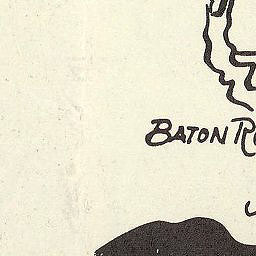 BATON RO